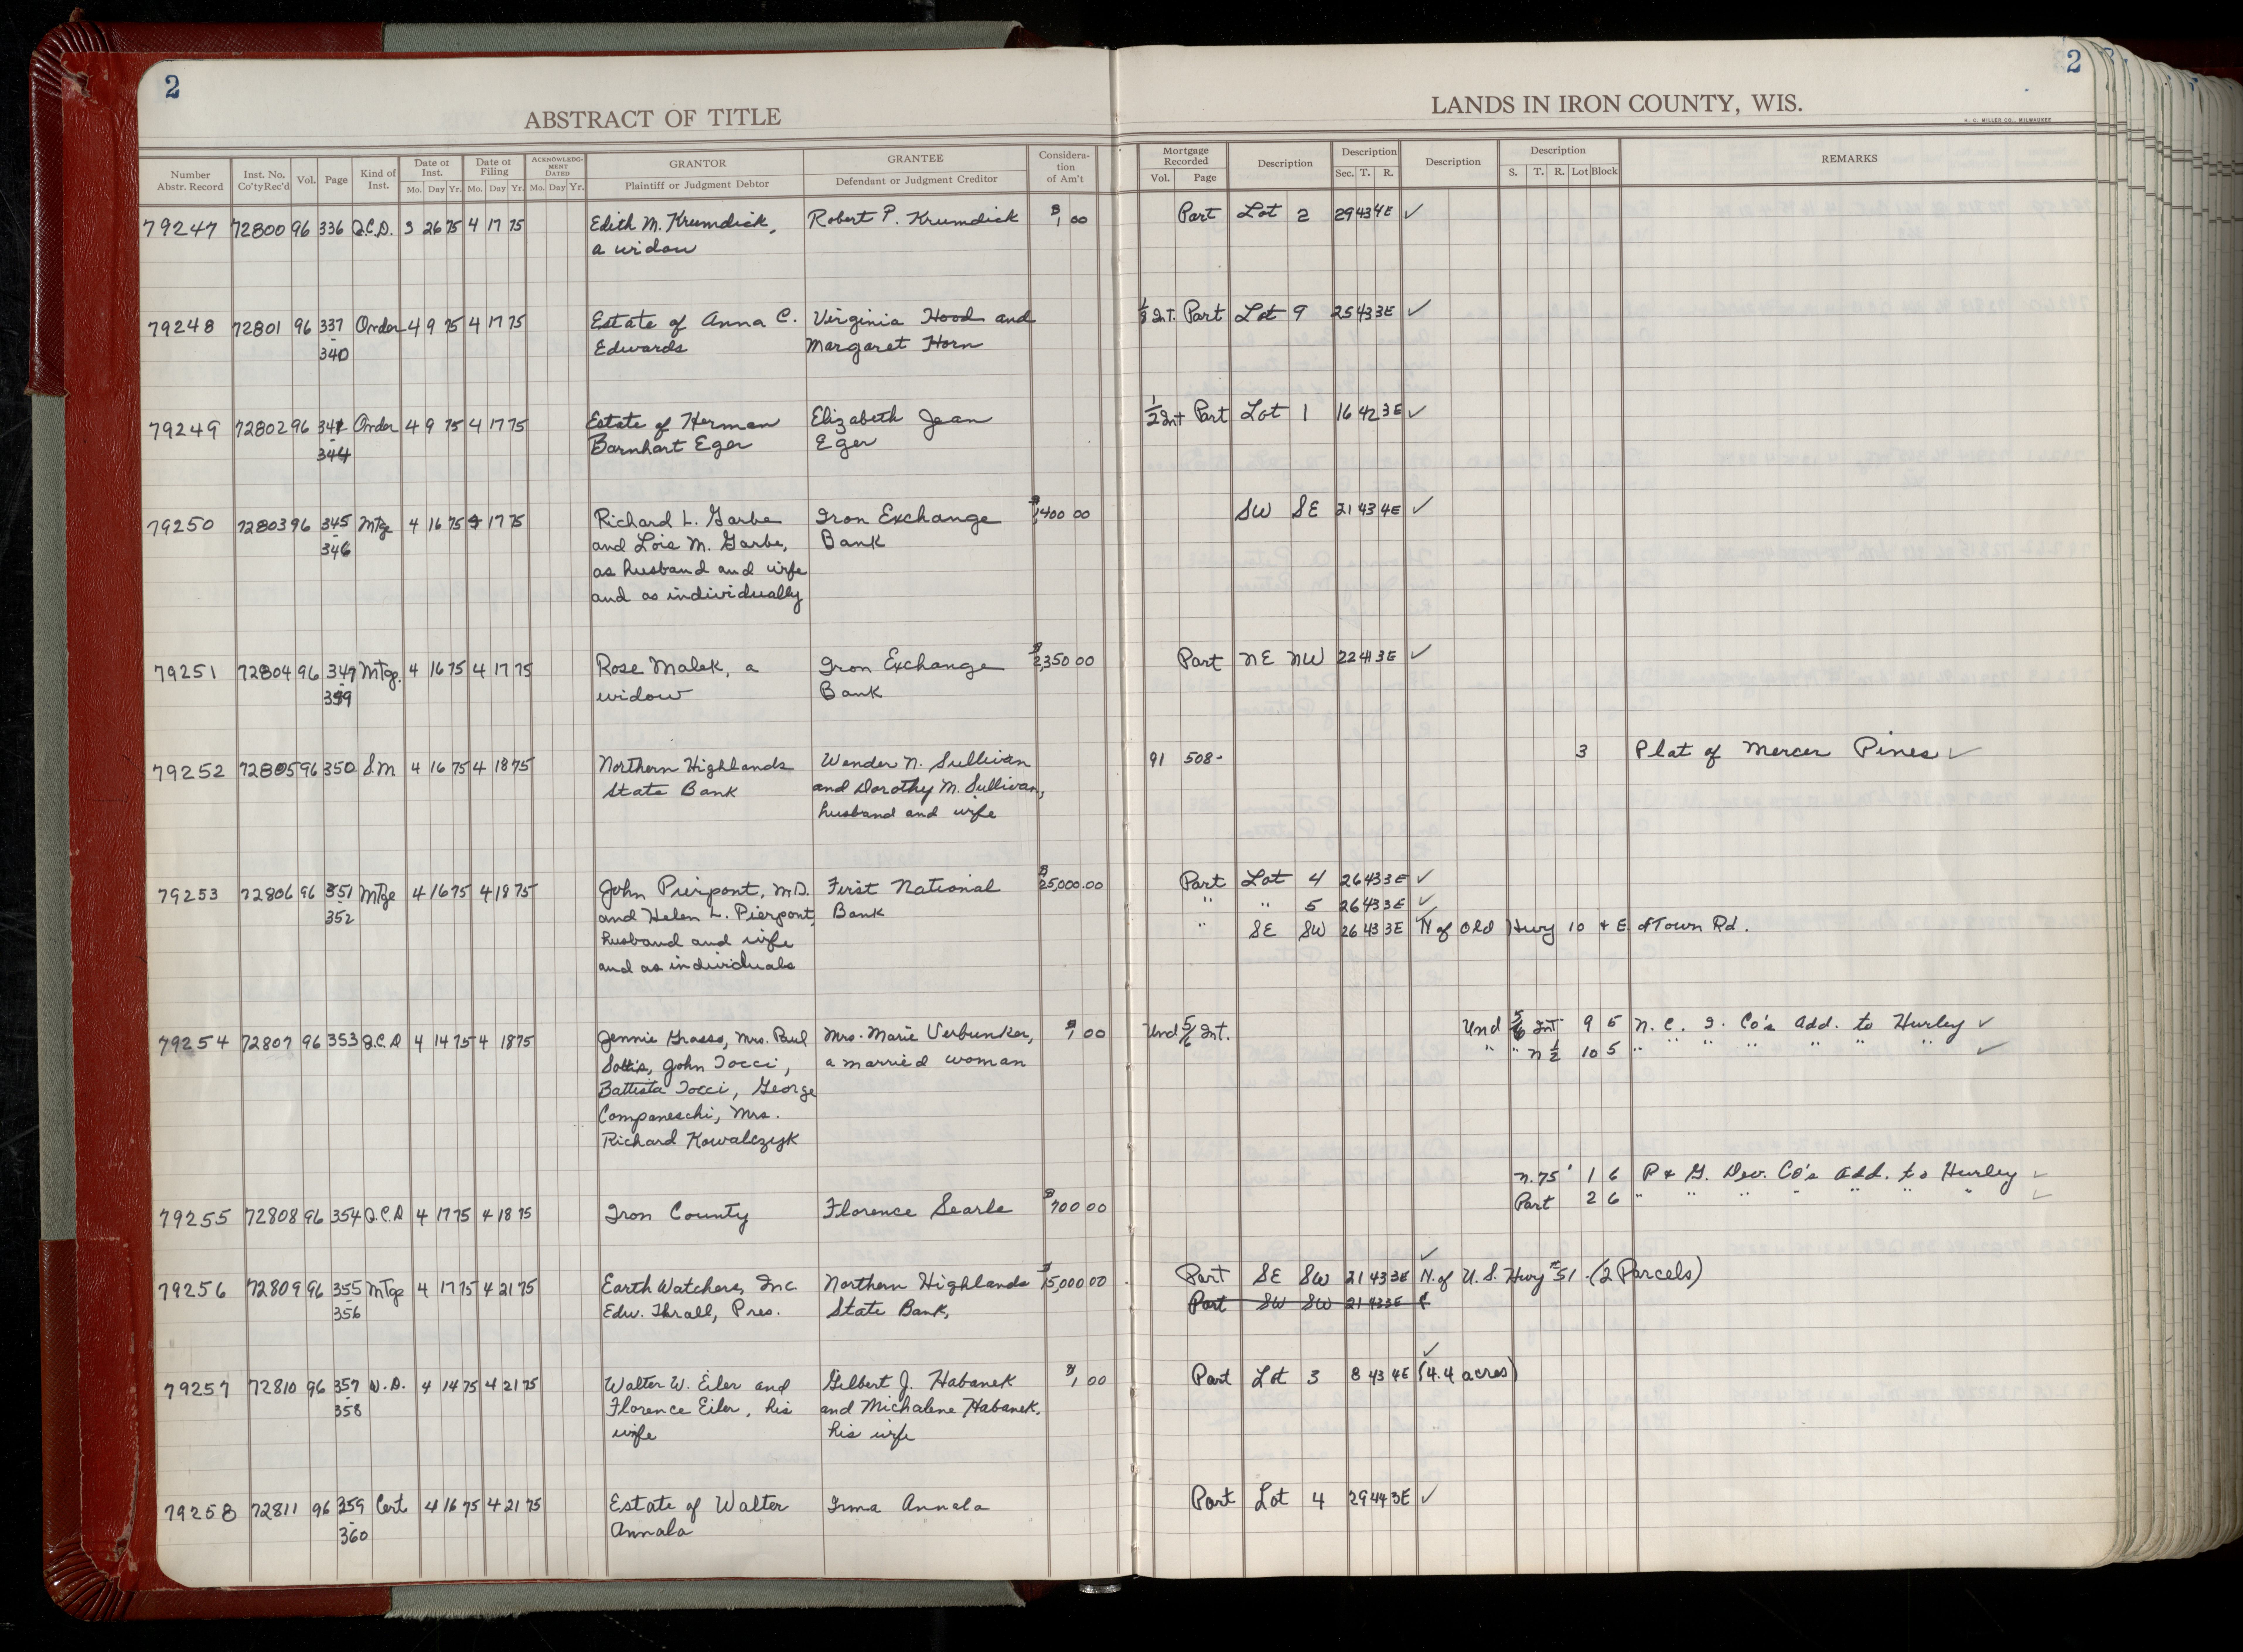 2
2
ABSTRACT OF TITLE
LANDS IN IRON COUNTY, WIS.
H. C. MILLER CO., MILWAUKEE
Number Abstr. Record | Inst. No. Co'ty Rec'd | Vol. | Page | Kind of Inst. | Date of Inst. Mo. Day Yr. | Date of Filing Mo. Day Yr. | ACKNOWLEDGMENT DATED Mo. Day Yr. | GRANTOR Plaintiff or Judgment Debtor | GRANTEE Defendant or Judgment Creditor | Consideration of Am't | Mortgage Recorded Vol. Page | Description | Description Sec. T. R. | Description | Description S. T. R. Lot Block | REMARKS
79247 72800 96 336 Q.C.D. 3 26 75 4 17 75 Edith M. Krumdick, Robert P. Krumdick $1 00 Part Lot 2 29 43 4E ✓
a widow
79248 72801 96 337 Order 4 9 75 4 17 75 Estate of Anna C. Virginia Hood and Int. Part Lot 9 25 43 3E ✓
- 340 Edwards Margaret Horn
79249 72802 96 341 Order 4 9 75 4 17 75 Estate of Herman Elizabeth Jean 1/2 Int Part Lot 1 16 42 3E ✓
- 344 Barnhart Eger Eger
79250 72803 96 345 Mtge 4 16 75 4 17 75 Richard L. Garbe Iron Exchange $1400 00 SW SE 21 43 4E ✓
- 346 and Lois M. Garbe, Bank
as husband and wife
and as individually
79251 72804 96 347 Mtge. 4 16 75 4 17 75 Rose Malek, a Iron Exchange $2,350 00 Part NE NW 22 41 3E ✓
- 349 widow Bank
79252 72805 96 350 S.M 4 16 75 4 18 75 Northern Highlands N. Sullivan 91 508 3 Plat of Mercer Pines ✓
State Bank and Dorothy M. Sullivan,
husband and wife
79253 72806 96 351 Mtge 4 16 75 4 18 75 John Pierpont, M.D. First National $25,000.00 Part Lot 4 26 43 3E ✓
- 352 and Helen L. Pierpont, Bank " " 5 26 43 3E ✓
husband and wife " SE SW 26 43 3E N of Old Hwy 10 + E of Town Rd.
and as individuals
79254 72807 96 353 Q.C.D 4 14 75 4 18 75 Jennie Grasso, Mrs. Paul Mrs. Marie Verbunker, $1 00 Und 5/6 Int. Und 5/6 Int 9 5 N. C. I. Co's Add. to Hurley ✓
John Tocci, a married woman " " N 1/2 10 5 " " " " " " " ✓
Battista Tocci, George
Companeschi, Mrs.
Richard Kowalczyk
N. 75' 1 6 P + G. Dev. Co's Add. to Hurley ✓
Part 2 6 " " " " " " " ✓
79255 72808 96 354 Q.C.D 4 17 75 4 18 75 Iron County Florence Searle $700 00
79256 72809 96 355 Mtge 4 17 75 4 21 75 Earth Watchers, Inc Northern Highlands $15,000.00 Part SE SW 21 43 3E ✓ N. of U. S. Hwy #51. (2 Parcels)
- 356 Edw. Thrall, Pres. State Bank, Part SW SW 21 43 3E
79257 72810 96 357 W.D. 4 14 75 4 21 75 Walter W. Eiler and Gilbert J. Habanek $1 00 Part Lot 3 8 43 4E ✓ (4.4 acres)
- 358 Florence Eiler, his and Michalene Habanek,
wife his wife
79258 72811 96 359 Cert 4 16 75 4 21 75 Estate of Walter Irma Annala Part Lot 4 29 44 3E ✓
- 360 Annala